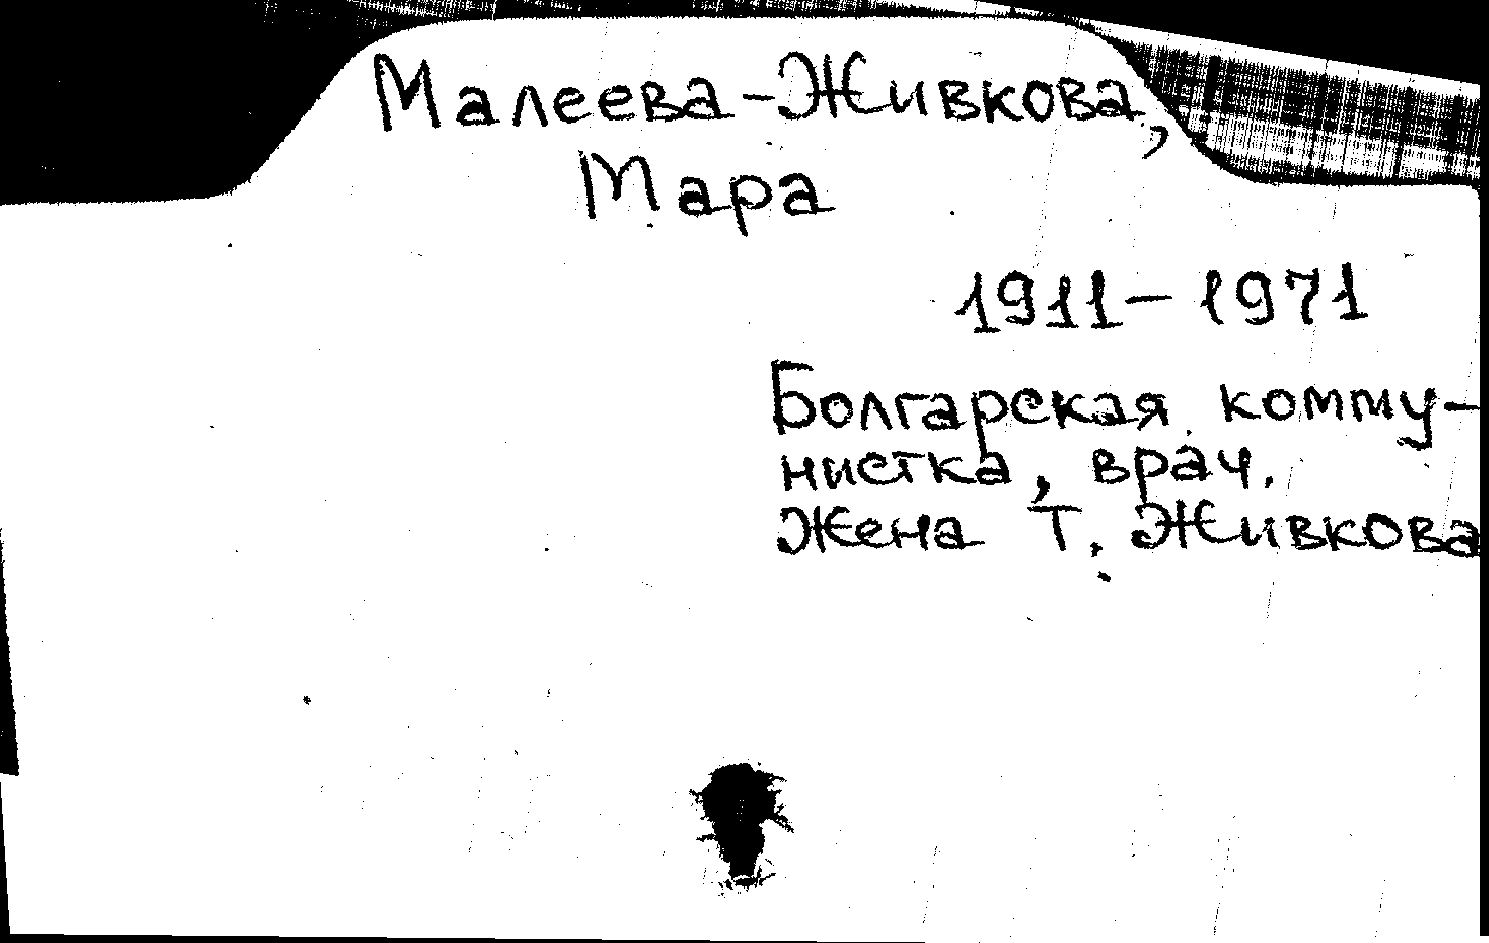 Малеева-Живкова,
Мара
1911-1971
Болгарская комму-
нистка, врач.
Жена Т. Живкова